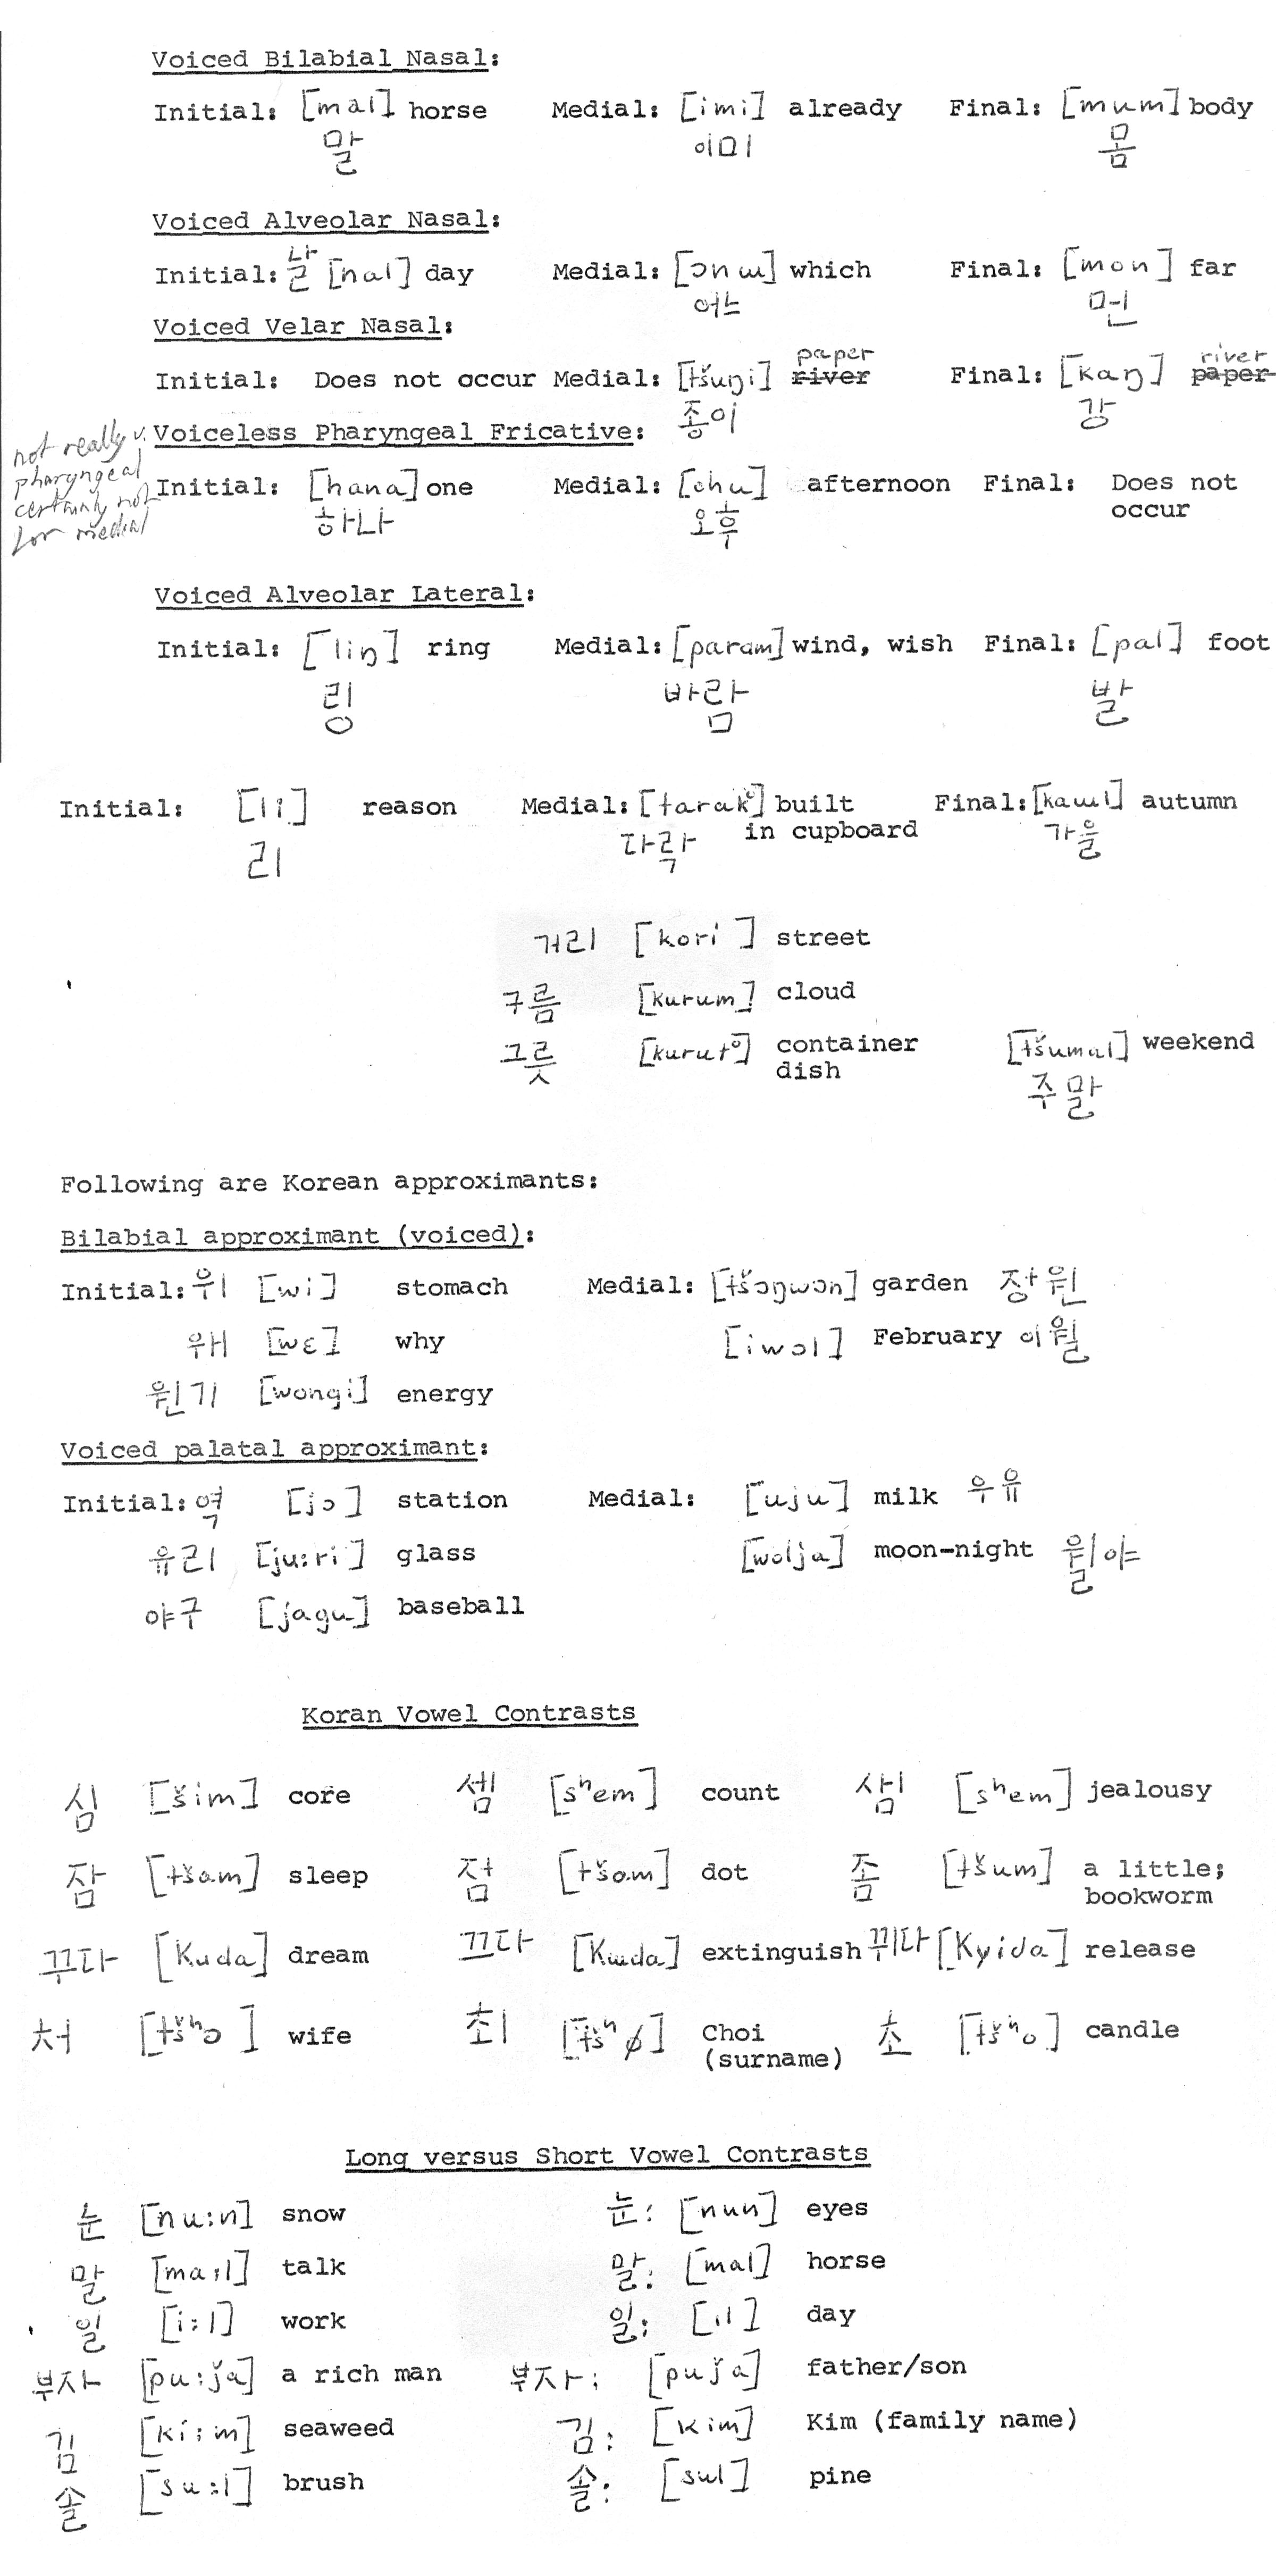 Voiced Bilabial Nasal:
Initial: [mal] horse Medial: [imi] already Final: [mum] body
말 이미 몸
Voiced Alveolar Nasal:
Initial: 날 [nal] day Medial: [ɔnɯ] which Final: [mon] far
어느 먼
Voiced Velar Nasal:
paper river
Initial: Does not occur Medial: [tšuŋi] river Final: [kaŋ] paper
종이 강
Voiceless Pharyngeal Fricative:
not really v.
pharyngeal
certainly not
for medial
Initial: [hana] one Medial: [ohu] afternoon Final: Does not
occur
하나 오후
Voiced Alveolar Lateral:
Initial: [liŋ] ring Medial: [param] wind, wish Final: [pal] foot
링 바람 발
Initial: [li] reason Medial: [tarak°] built Final: [kaɯl] autumn
in cupboard
리 다락 가을
거리 [kori] street
구름 [kurum] cloud
그릇 [kurut°] container [tšumal] weekend
dish
주말
Following are Korean approximants:
Bilabial approximant (voiced):
Initial: 위 [wi] stomach Medial: [tšɔŋwɔn] garden 장원
왜 [wɛ] why [iwɔl] February 이월
원기 [wongi] energy
Voiced palatal approximant:
Initial: 역 [jɔ] station Medial: [uju] milk 우유
유리 [ju:ri] glass [wolja] moon-night 월야
야구 [jagu] baseball
Koran Vowel Contrasts
심 [šim] core 셈 [sʰem] count 샘 [sʰem] jealousy
잠 [tšam] sleep 점 [tšom] dot 좀 [tšum] a little;
bookworm
꾸다 [Kuda] dream 끄다 [Kɯda] extinguish 뀌다 [Kyida] release
처 [tšʰɔ] wife 최 [tšʰø] Choi 초 [tšʰo] candle
(surname)
Long versus Short Vowel Contrasts
눈 [nu:n] snow 눈: [nun] eyes
말 [ma:l] talk 말: [mal] horse
일 [i:l] work 일: [il] day
부자 [pu:ǰa] a rich man 부자: [puǰa] father/son
김 [ki:m] seaweed 김: [kim] Kim (family name)
솔 [su:l] brush 솔: [sul] pine